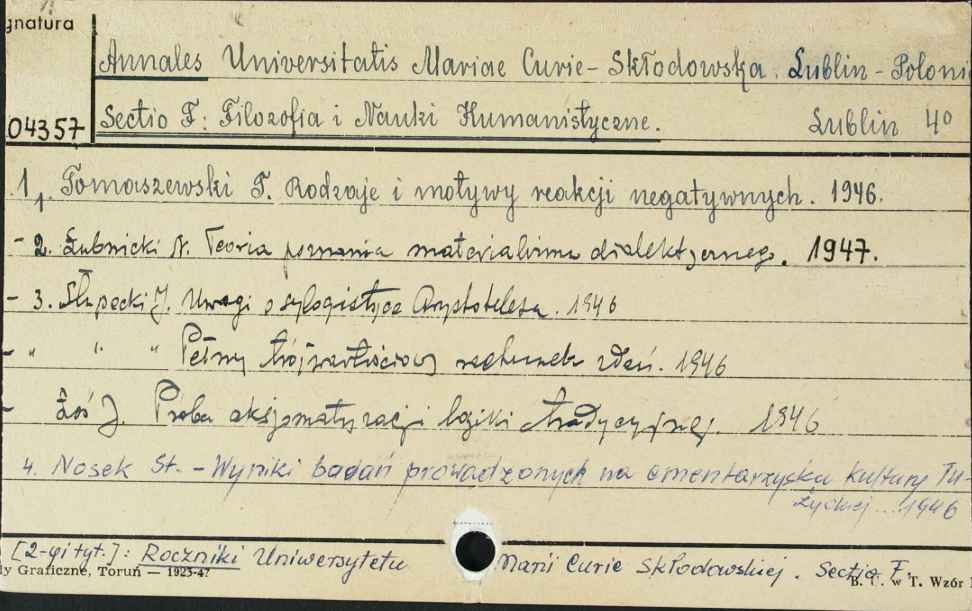 gnatura
Annales Universitatis Mariae Curie-Skłodowska. Lublin - Poloni
04357 Sectio F: Filozofia i Nauki Humanistyczne. Lublin 4º
1. Tomaszewski T. Rodzaje i motywy reakcji negatywnych. 1946.
- 2. Łubnicki N. Teoria poznania materializmu dialektycznego. 1947.
- 3. Słupecki J. Uwagi o sylogistyce Arystotelesa. 1946
- " " " Pełny trójwartościowy rachunek zdań. 1946
- Łoś J. Próba aksjomatyzacji logiki tradycyjnej. 1946
4. Nosek St. - Wyniki badań prowadzonych na cmentarzysku kultury Łu-
życkiej ... 1946
[2-gi tyt.]: Roczniki Uniwersytetu Marii Curie Skłodowskiej. Sectio F.
dy Graficzne, Toruń — 1923-47 B. U. w T. Wzór 1